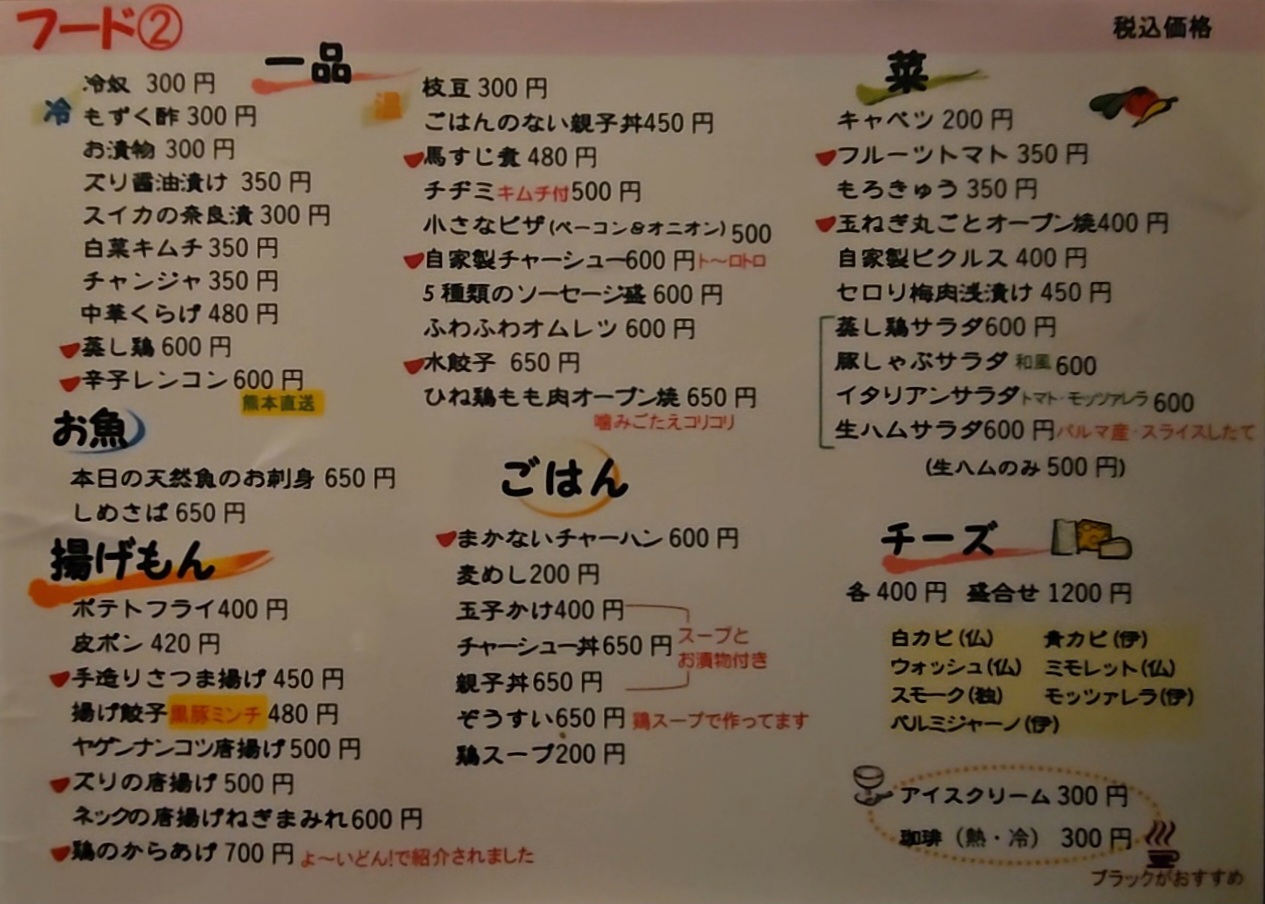 フード②
税込価格
一品
冷
冷奴 300 円
もずく酢 300 円
お漬物 300 円
ズリ醤油漬け 350 円
スイカの奈良漬 300 円
白菜キムチ 350 円
チャンジャ 350 円
中華くらげ 480 円
蒸し鶏 600 円
辛子レンコン 600 円
熊本直送
温
枝豆 300 円
ごはんのない親子丼450 円
馬すじ煮 480 円
チヂミキムチ付500 円
小さなピザ(ベーコン&オニオン) 500
自家製チャーシュー600 円ト〜ロトロ
5 種類のソーセージ盛 600 円
ふわふわオムレツ 600 円
水餃子 650 円
ひね鶏もも肉オーブン焼 650 円
噛みごたえコリコリ
お魚
本日の天然魚のお刺身 650 円
しめさば 650 円
揚げもん
ポテトフライ400 円
皮ポン 420 円
手造りさつま揚げ 450 円
揚げ餃子黒豚ミンチ 480 円
ヤゲンナンコツ唐揚げ500 円
ズリの唐揚げ 500 円
ネックの唐揚げねぎまみれ600 円
鶏のからあげ 700 円 よ〜いどん!で紹介されました
ごはん
まかないチャーハン 600 円
麦めし200 円
玉子かけ400 円
チャーシュー丼650 円
親子丼650 円
スープと
お漬物付き
ぞうすい650 円 鶏スープで作ってます
鶏スープ200 円
菜
キャベツ 200 円
フルーツトマト 350 円
もろきゅう 350 円
玉ねぎ丸ごとオーブン焼400 円
自家製ピクルス 400 円
セロリ梅肉浅漬け 450 円
蒸し鶏サラダ600 円
豚しゃぶサラダ 和風 600
イタリアンサラダトマト・モッツァレラ 600
生ハムサラダ600 円パルマ産・スライスしたて
(生ハムのみ 500 円)
チーズ
各 400 円 盛合せ 1200 円
白カビ(仏) 青カビ(伊)
ウォッシュ(仏) ミモレット(仏)
スモーク(独) モッツァレラ(伊)
パルミジャーノ(伊)
アイスクリーム 300 円
珈琲（熱・冷） 300 円
ブラックがおすすめ